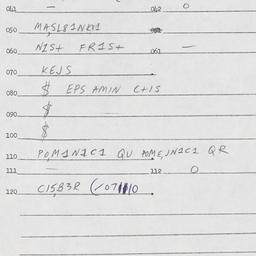 041 — 042 0
050 MA,SL81NK01
060 N1S+ FR1S+ 061 —
070 KEJS
080 $ EPS AMIN C+1S
090 $ —
100 $
110 PO,M1N1C1 QU POME,JN1C1 QR
111 — 112 0
120 C15,B3R (/07 10